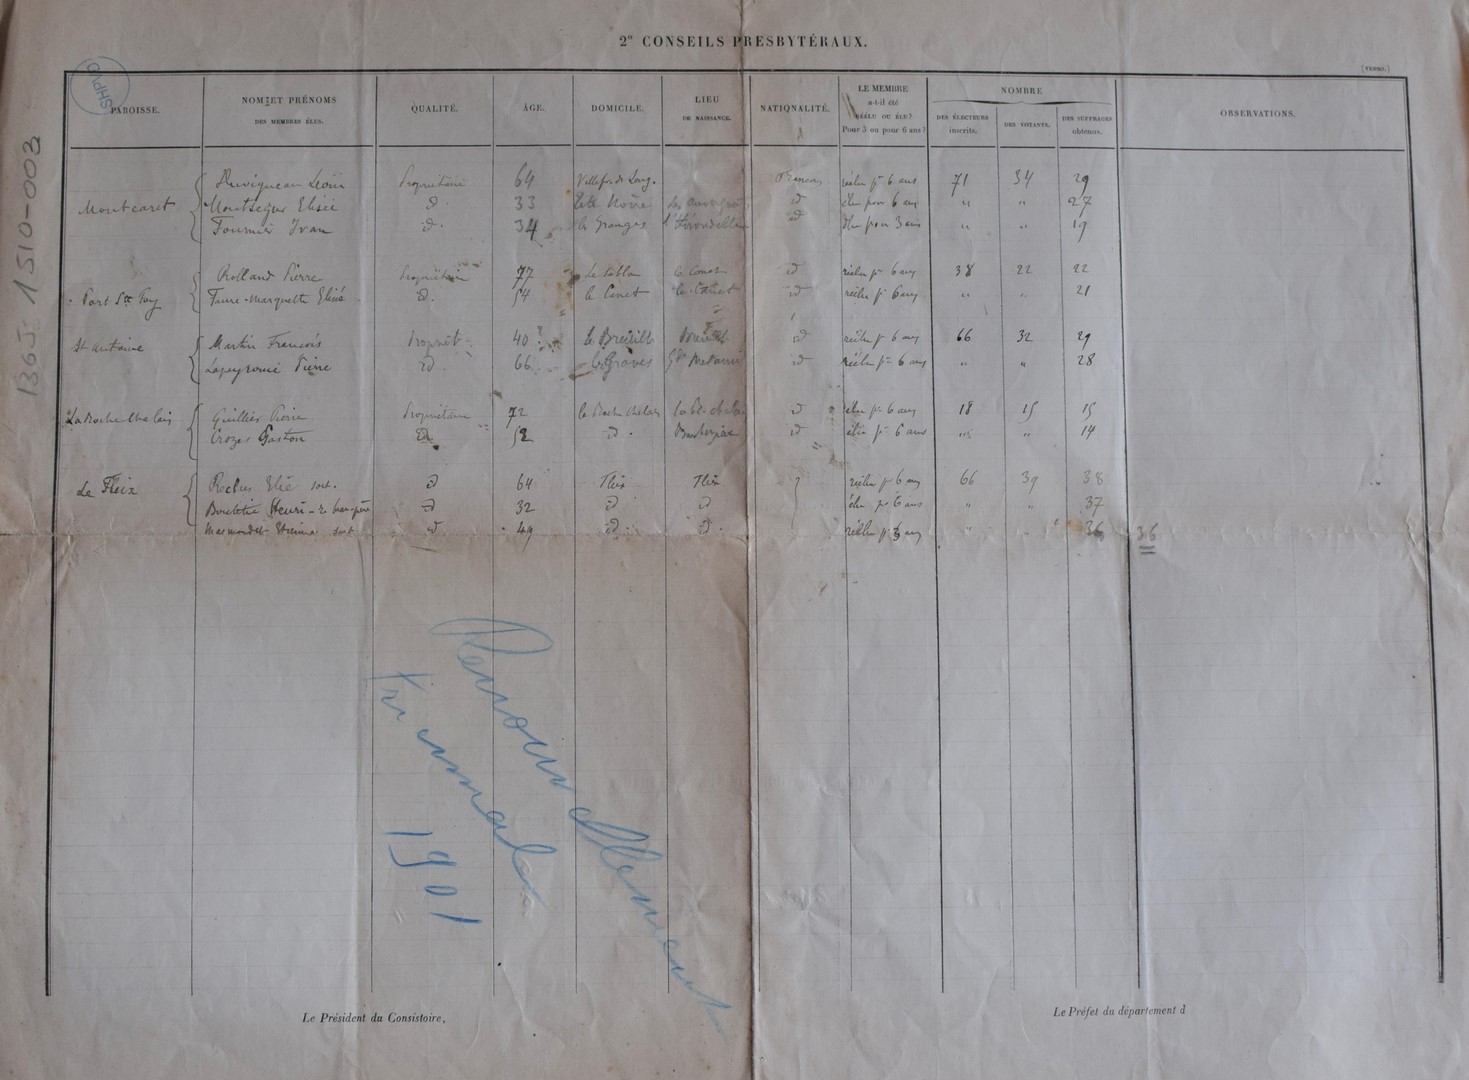 2º CONSEILS PRESBYTÉRAUX.
(VERSO.)
SHPVD
1365 1510-003
PAROISSE. NOM ET PRÉNOMS DES MEMBRES ÉLUS. QUALITÉ. ÂGE. DOMICILE. LIEU DE NAISSANCE. NATIONALITÉ. LE MEMBRE a-t-il été RÉÉLU OU ÉLU? Pour 3 ou pour 6 ans? NOMBRE DES ÉLECTEURS inscrits. DES VOTANTS. DES SUFFRAGES obtenus. OBSERVATIONS.
Duvigneau Propriétaire 64 Français réélu pr 6 ans 71 34 29
Montcaret Montségur Elisée d 33 id élu pour 6 ans " " 27
Fournier Ivan d 34 les Granges id élu pour 3 ans " " 19
Rolland Pierre Propriétaire 77 le Sablou le Canet id réélu pr 6 ans 38 22 22
Port Ste Foy Faure-Marquette Elisée d. 54 le Canet le Canet id réélu pr 6 ans " " 21
St Antoine Martin François Propriét. 40 le Breuilh id réélu pr 6 ans 66 32 29
Lapeyronie Pierre id. 66 les Graves id réélu pr 6 ans " " 28
La Roche Chalais Guillier Pierre Propriétaire 72 la Roche Chalais id élu pr 6 ans 18 15 15
Crozes Gaston id 52 d. id élu pr 6 ans " " 14
Le Fleix Reclus Elie sort. d 64 Fleix Fleix réélu pr 6 ans 66 39 38
Henri d 32 d d élu pr 6 ans " " 37
sort id 49 d. d. réélu pr 6 ans " " 36 36
Renouvellement
triennal de
1901
Le Président du Consistoire,
Le Préfet du département d